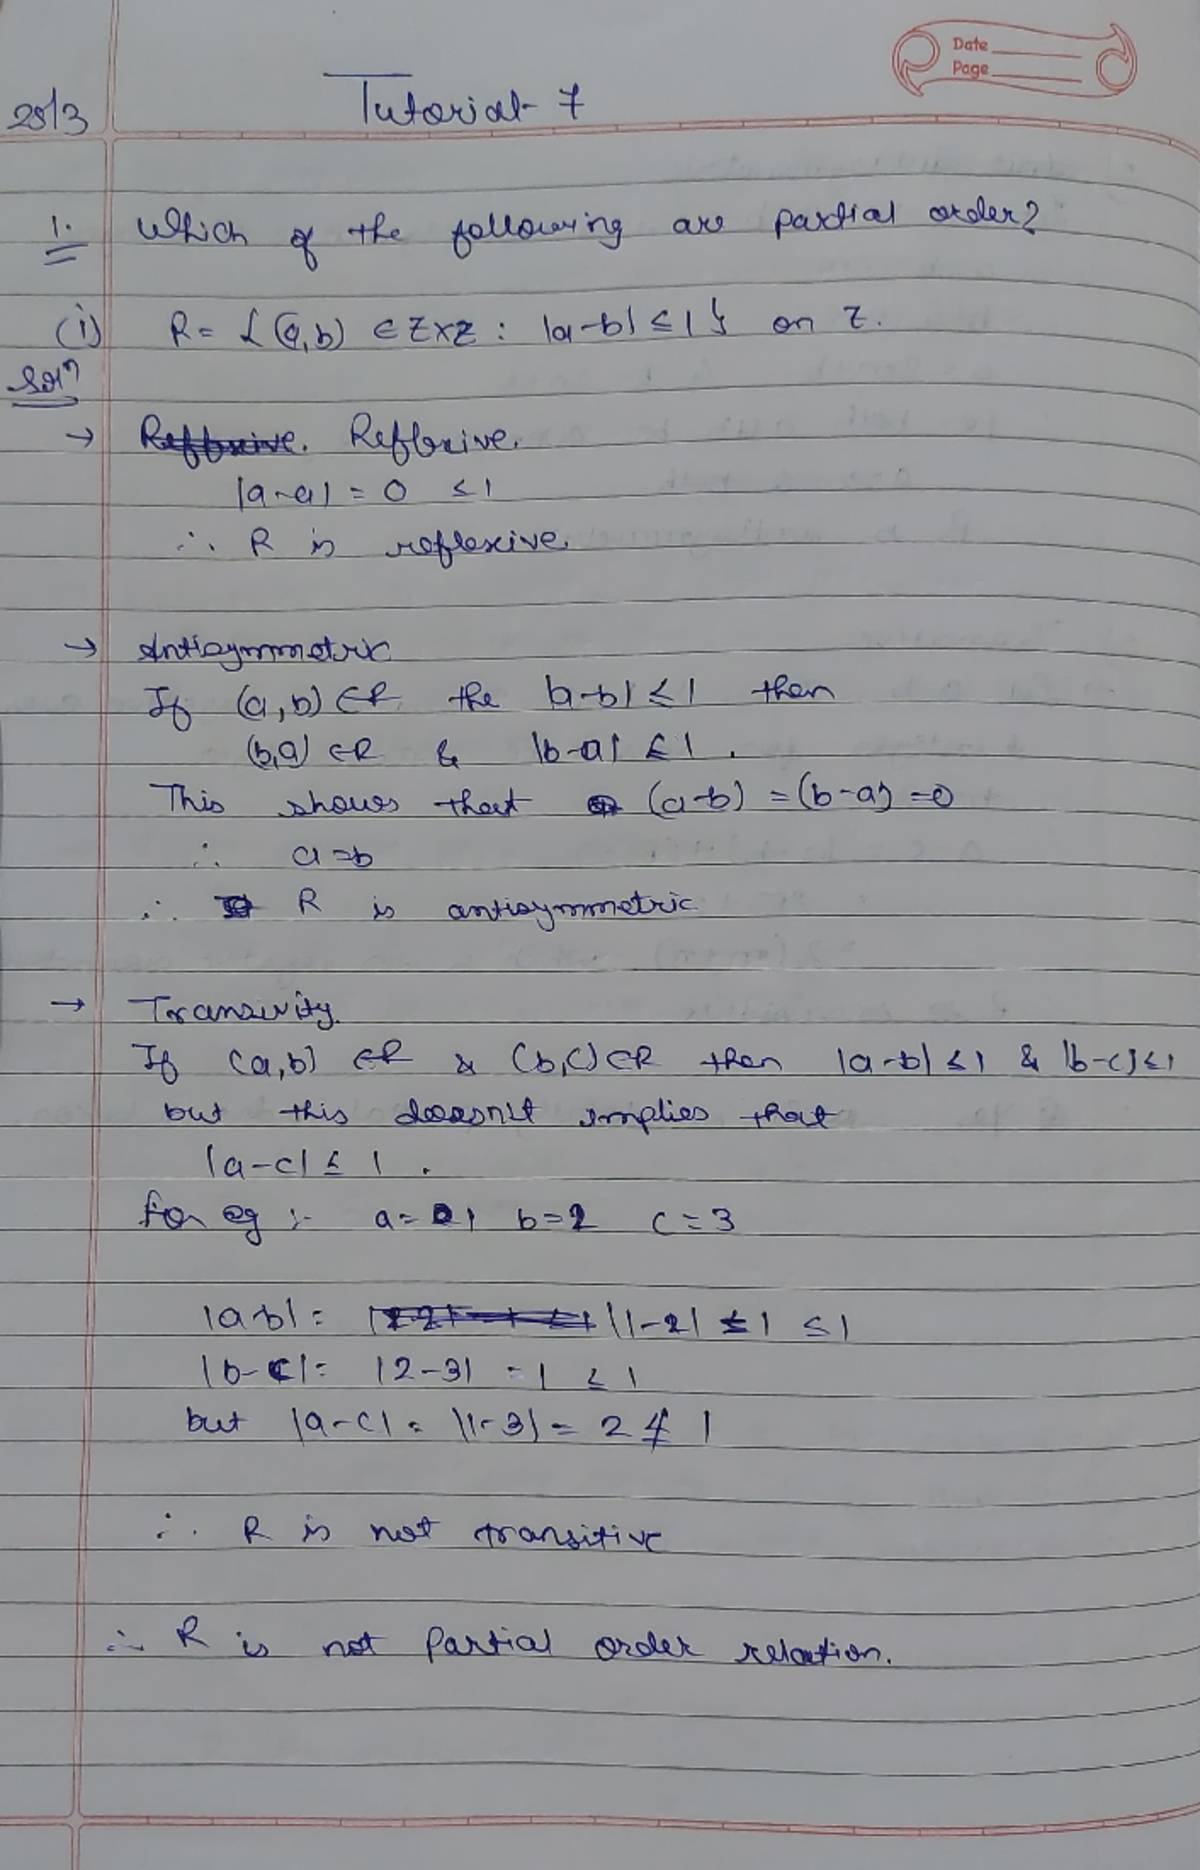 Date
Page
25/3
Tutorial- 7
1. Which of the following are partial order?
(i) R = {(a,b) ∈ Z×Z : |a-b| ≤ 1} on Z.
Solⁿ
→ Reflexive.
|a-a| = 0 ≤ 1
∴ R is reflexive.
→ Antisymmetric
If (a,b) ∈ R the |a-b| ≤ 1 then
(b,a) ∈ R & |b-a| ≤ 1.
This shows that (a-b) = (b-a) = 0
∴ a=b
∴ R is antisymmetric
→ Transivity.
If (a,b) ∈ R & (b,c) ∈ R then |a-b| ≤ 1 & |b-c| ≤ 1
but this doesn't implies that
|a-c| ≤ 1.
for eg :- a=1 b=2 c=3
|a-b| = |1-2| ≤ 1 ≤ 1
|b-c| = |2-3| = 1 ≤ 1
but |a-c| = |1-3| = 2 ≰ 1
∴ R is not transitive
∴ R is not Partial order relation.